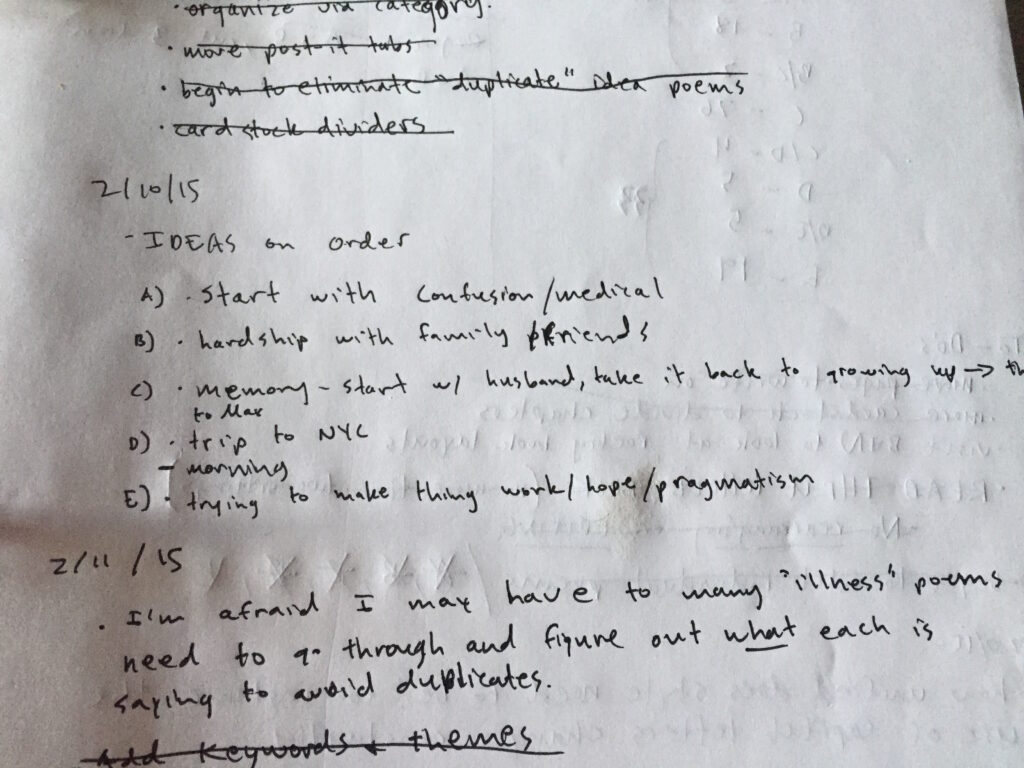 · organize via category.
· more post-it tabs
· begin to eliminate "duplicate" idea poems
· card stock dividers
2/10/15
- IDEAS on order
A) · start with confusion/medical
B) · hardship with family friends
C) · memory - start w/ husband, take it back to growing up → th
to Max
D) · trip to NYC
- morning
E) · trying to make thing work/hope/pragmatism
2/11/15
· I'm afraid I may have to many "illness" poems
need to go through and figure out what each is
saying to avoid duplicates.
Add Keywords + themes